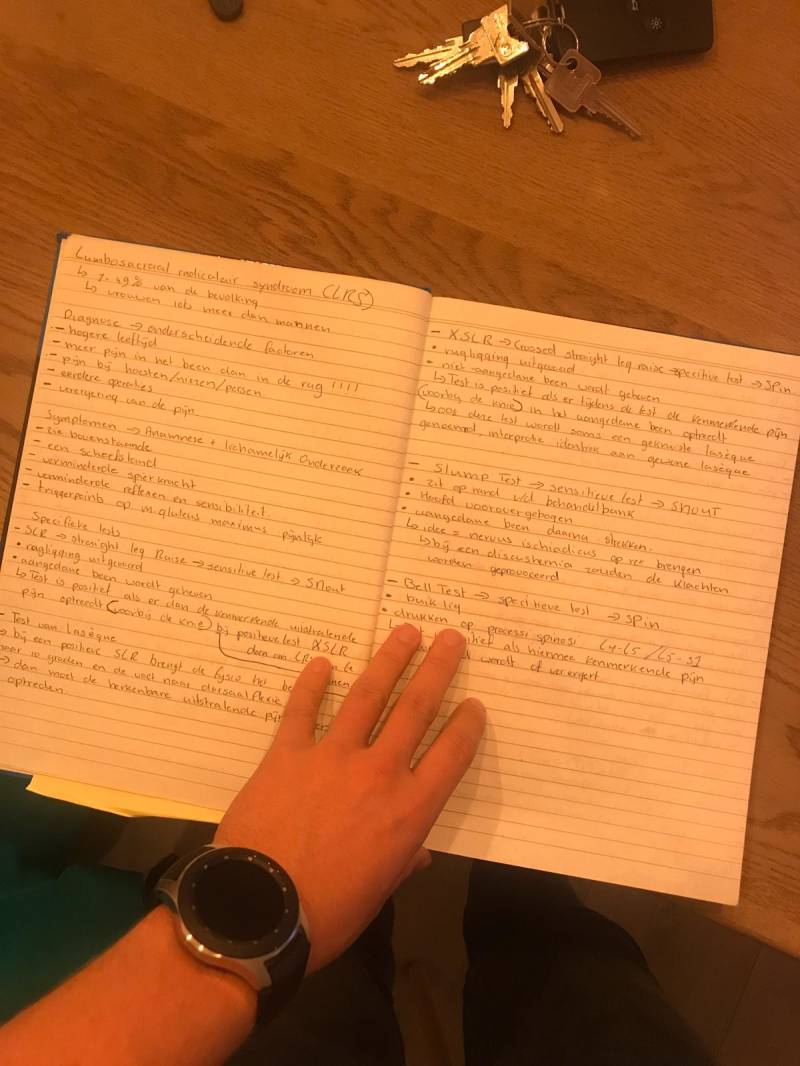 Lumbosacraal radiculair syndroom (LRS)
↳ 7-49% van de bevolking
↳ vrouwen iets meer dan mannen
Diagnose → onderscheidende factoren
- hogere leeftijd
- meer pijn in het been dan in de rug !!!!
- pijn bij hoesten/niezen/persen
- eerdere operaties
- verergering van de pijn
Symptomen → Anamnese + lichamelijk Onderzoek
- zie bovenstaande
- een scheefstand
- verminderde spierkracht
- verminderde reflexen en sensibiliteit.
- triggerpoints op m. gluteus maximus pijnlijk
Specifieke tests
- SLR → straight leg Raise → sensitieve test → Snout
• rugligging uitgevoerd
• aangedane been wordt geheven
↳ Test is positief als er dan de kenmerkende uitstralende
pijn optreedt (voorbij de knie) bij positieve test XSLR
doen om
- Test van Lasèque
→ bij een positieve SLR brengt de fysio het
10 graden en de voet naar dorsaal flexie
→ dan moet de herkenbare uitstralende
optreden
- XSLR → Crossed straight leg raise → specitive test → SPin
• rugligging uitgevoerd
• niet-aangedane been wordt geheven
↳ Test is positief als er tijdens de test de kenmerkende pijn
(voorbij de knie) in het aangedane been optreedt
↳ ook deze test wordt soms een gekruiste lasèque
genoemd, interpretie identiek aan gewone lasèque
- Slump Test → sensitieve test → SnouT
• zit op rand v/d behandelbank
• Hoofd voorovergebogen
• aangedane been daarna strekken.
↳ idee = nervus ischiadicus op rek brengen
↳ bij een discushernia zouden de klachten
worden geprovoceerd
- Bell Test → specitieve test → SPin
• buik lig
• drukken op processi spinosi L4-L5 / L5-S1
als hiermee kenmerkende pijn
wordt of verergert